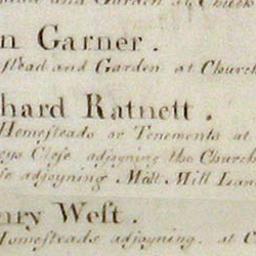 and Garden at Church
n Garner .
stead and Garden at Church
hard Ratnett .
Homesteads or Tenements at
Close adjoyning the Church
adjoyning Malt Mill Lan
nry West .
Homesteads adjoyning. at C